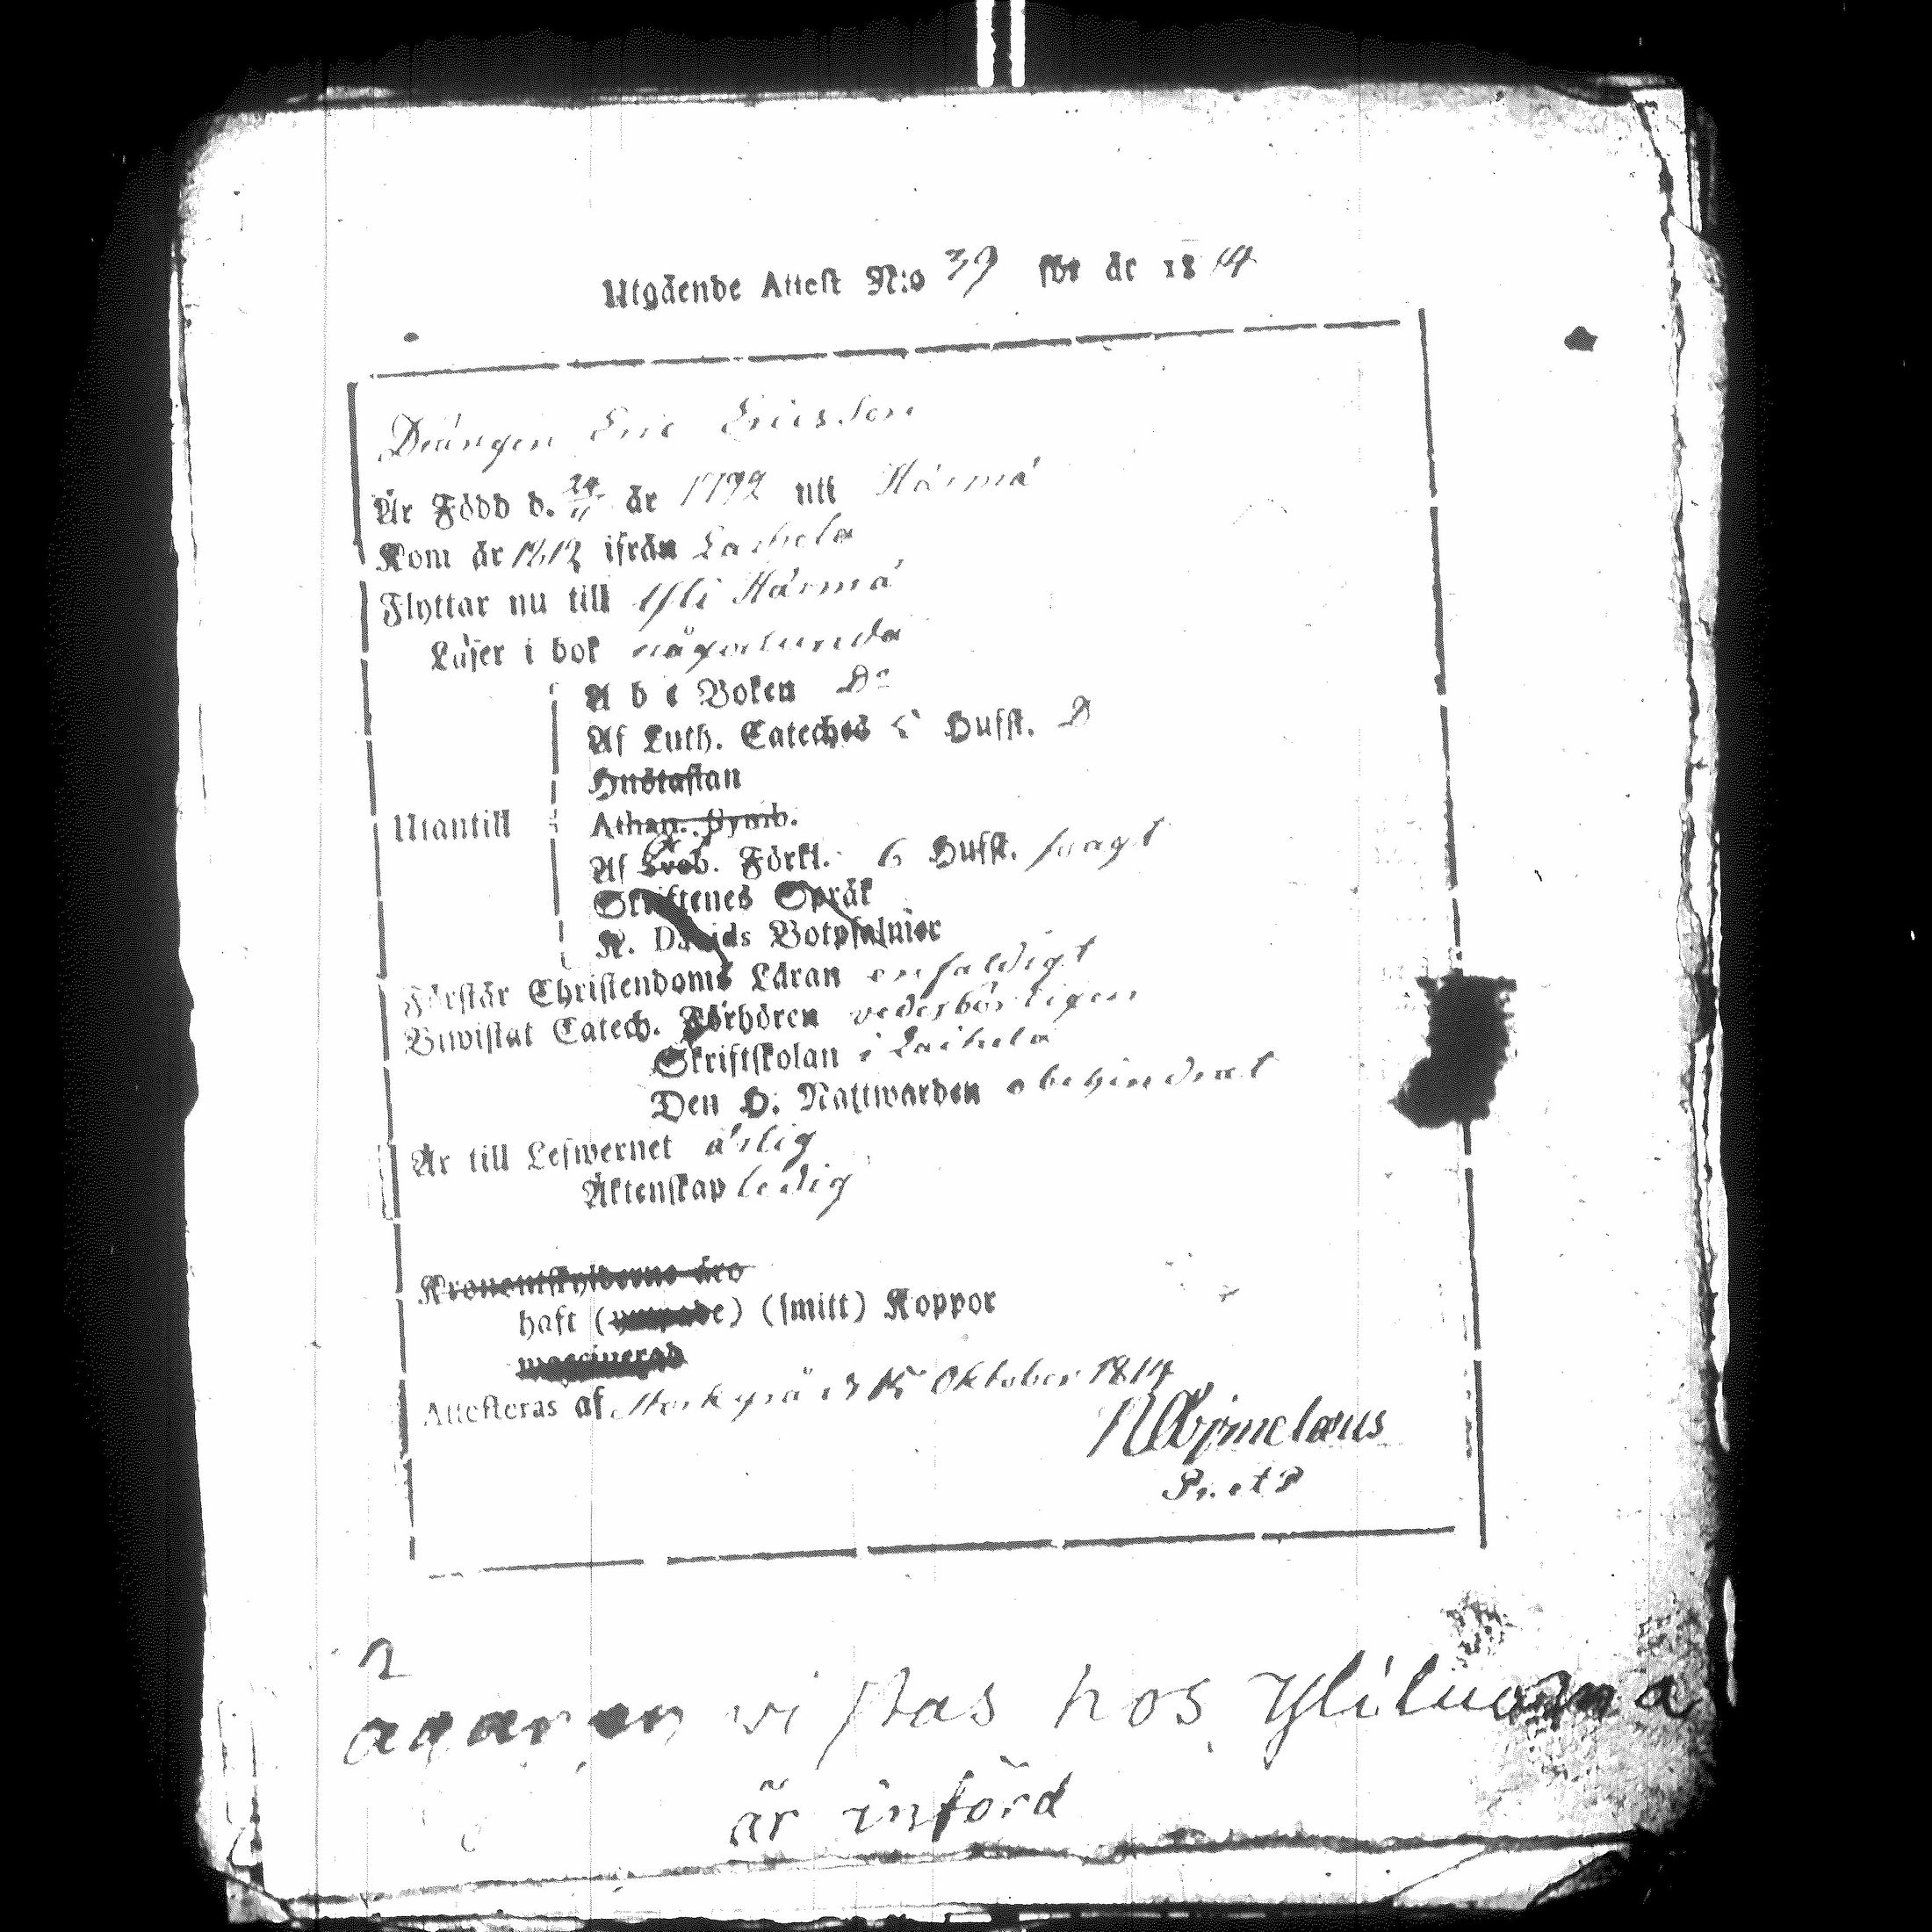 Utgående Attest N:o 39 för år 1814
Drängen Eric Ericsson
Är Född d. 24/11 år 1792 uti Härmä
Kom år 1812 ifrån Laihela
Flyttar nu till Yli Härmä
Läser i bok någorlunda
A b c Boken Do
Af Luth. Cateches 5 Hufst. D
Hustaflan
Athan. Symb.
Af Sveb. Förkl. 6 Hufst. svagt
Skriftenes Språk
K. Davids Botpsalmer
Utantill
Förstår Christendoms Läran enfaldigt
Biwistat Catech. Förhören vederbörligen
Skriftskolan i Laihela
Den H. Nattwarden obehindrat
Är till Lefwernet ärlig
Äktenskap ledig
Kronoutskylderne äro
haft () (smitt) Koppor
waccinerad
Attesteras af Storkyrå d 15 Oktober 1814
Pr. et P
ägaren vistas hos Yliluoma
är införd